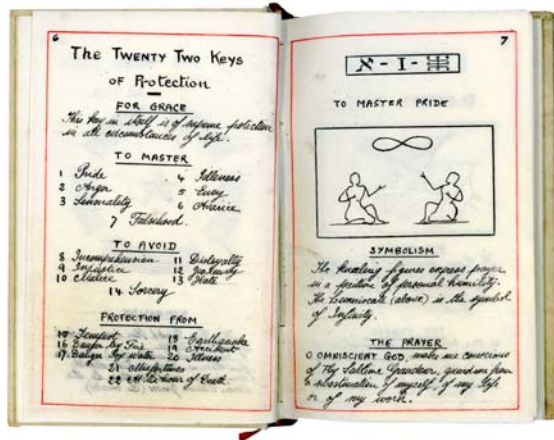 6
The TWENTY TWO KEYS
OF Protection
FOR GRACE
This key in itself is of supreme protection
in all circumstances of life.
TO MASTER
1 Pride
4 Idleness
2 Anger
5 Envy
3 Sensuality
6 Avarice
7 Falsehood.
TO AVOID
8 Incomprehension
11 Disloyalty
9 Injustice
12 Jealousy
10 Malice
13 Hate
14 Sorcery
PROTECTION FROM
15 Tempest
18 Earthquake
16 Danger by Fire
19 Accident
17 Danger by water
20 Illness
21 Misfortunes
22 At the hour of Death.
7
א - I -
TO MASTER PRIDE
SYMBOLISM
The kneeling figures express prayer
in a position of personal humility.
The Lemniscate (above) is the symbol
of Infinity.
THE PRAYER
O OMNISCIENT GOD, make me conscious
of Thy Sublime Grandeur, guard me from
of myself, of my life
or of my work.